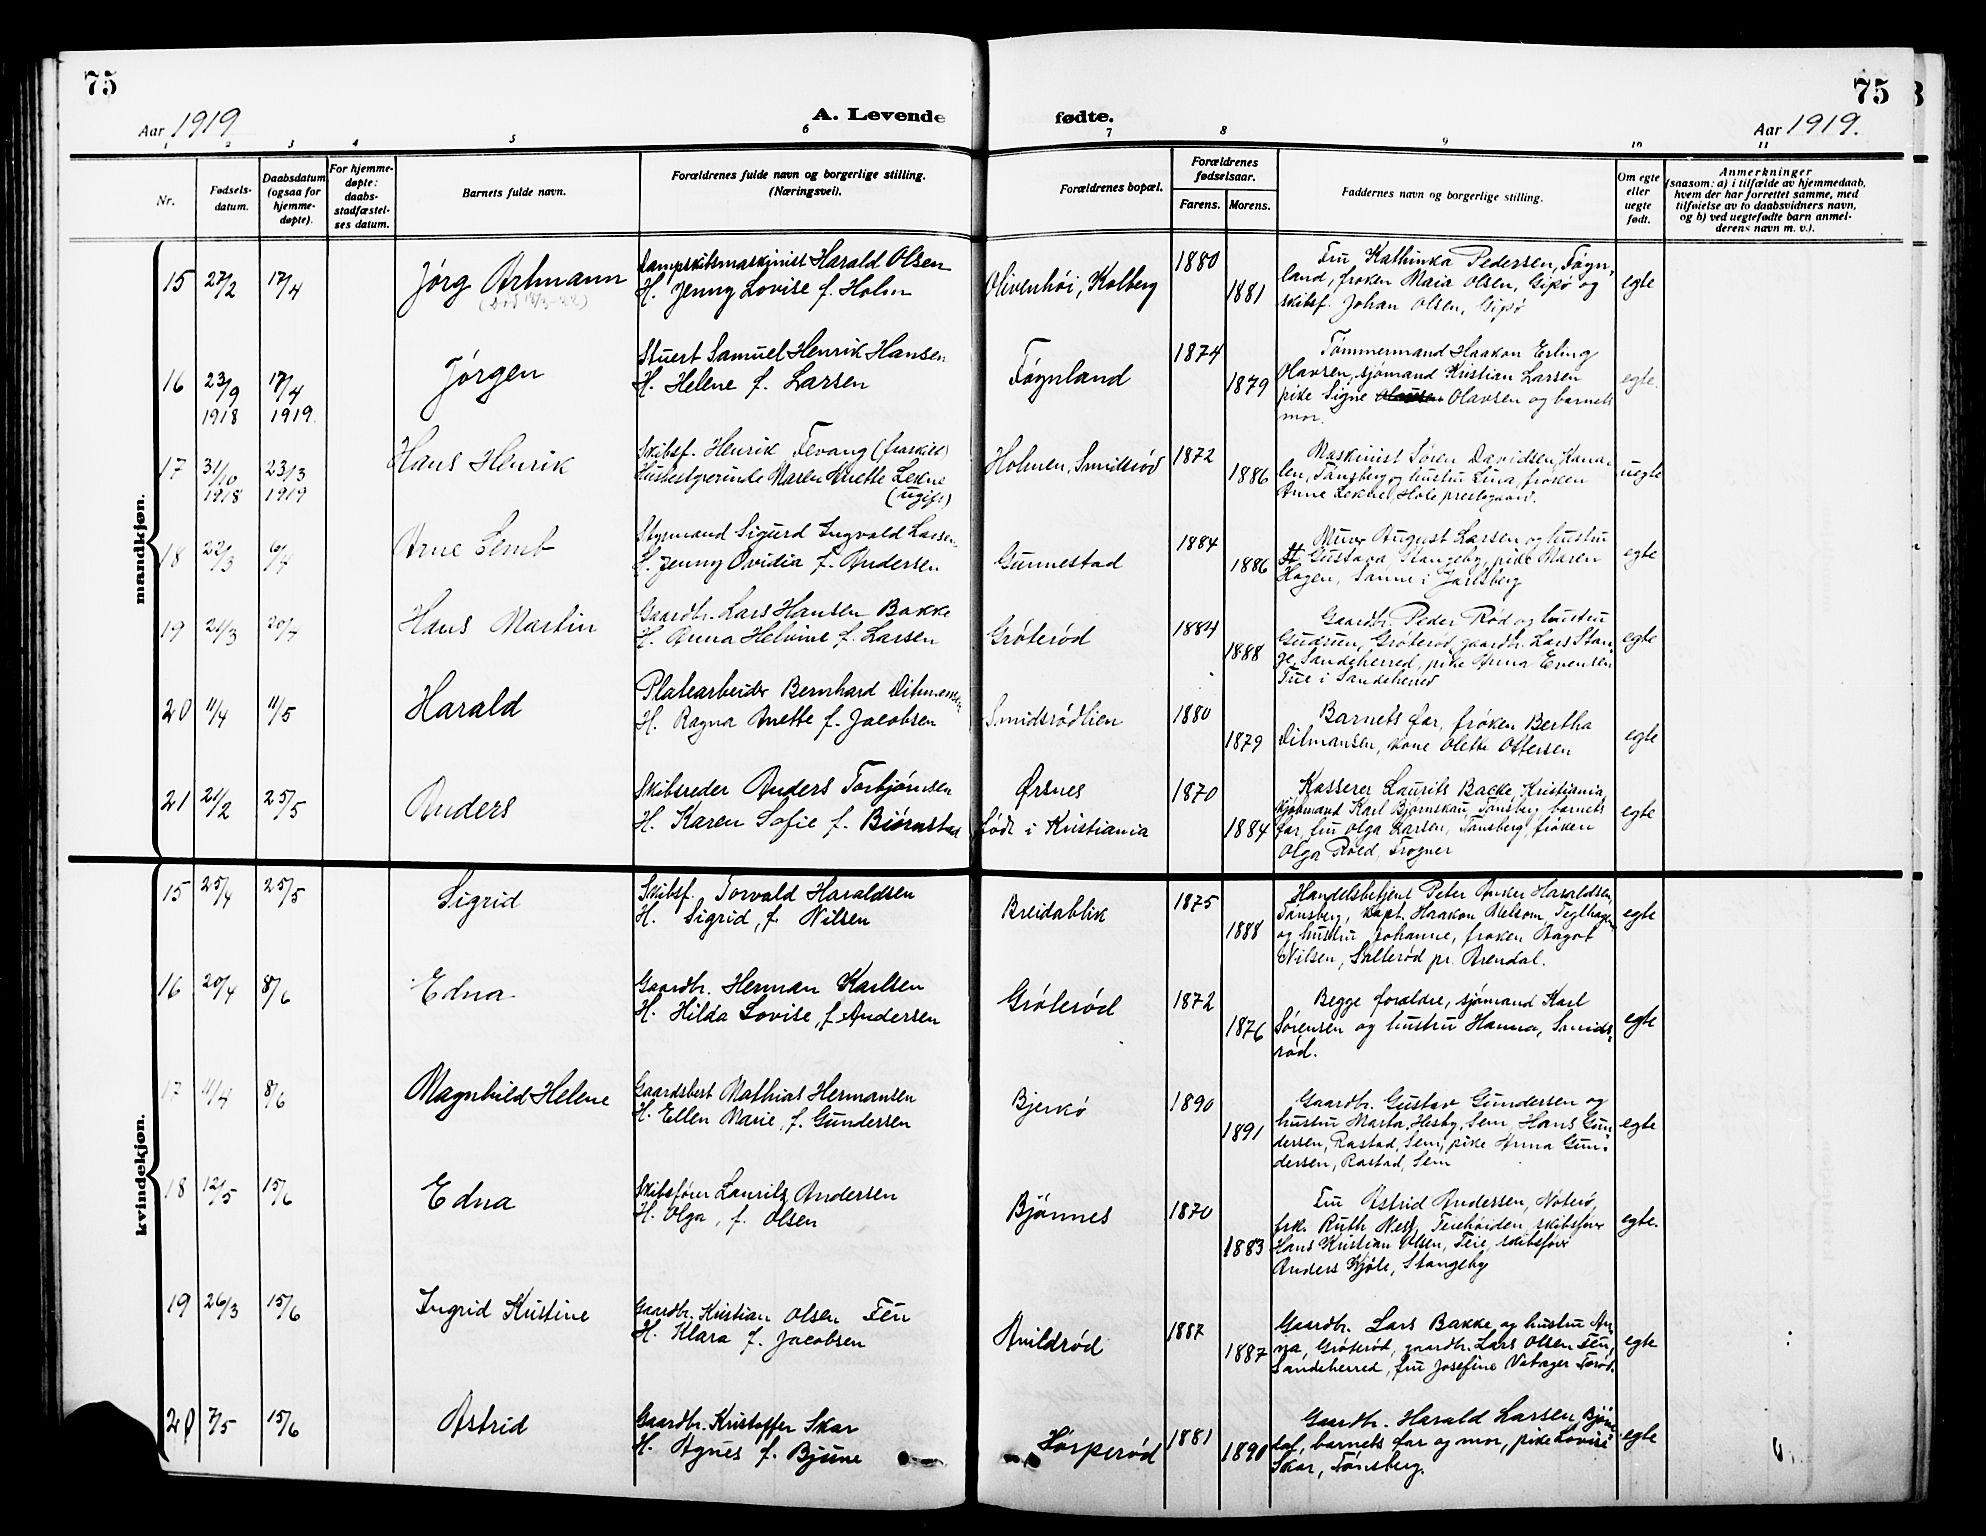 75
75
Aar 1919
A. Levende fødte.
Aar 1919.
1 2 3 4 5 6 7 8 9 10 11
Nr.
Fødsels-
datum.
Daabsdatum
(ogsaa for
hjemme-
døpte).
For hjemme-
døpte:
daabs-
stadfæstel-
ses datum.
Barnets fulde navn.
Forældrenes fulde navn og borgerlige stilling.
(Næringsvei).
Forældrenes bopæl.
Forældrenes
fødselsaar.
Farens. Morens.
Faddernes navn og borgerlige stilling.
Om egte
eller
uegte
født.
Anmerkninger
(saasom: a) i tilfælde av hjemmedaab,
hvem der har forrettet samme, med
tilføielse av to daabsvidners navn,
og b) ved uegtefødte barn anmel-
derens navn m. v.).
mandkjøn.
15 27/2 17/4 Jørg Artmann
Dampskibsmaskinist Harald Olsen
H. Jenny Lovise f. Holm
Olivenhøi, Kolberg
1880
1881
Fru Kathinka Pedersen, Føyn-
land, frøken Maia Olsen, Gipø og
skibsf. Johan Olsen, Gipø
egte
16 23/9 1918 17/4 1919. Jørgen
Stuert Samuel Henrik Hansen
H. Helene f. Larsen
Føynland
1874
1879
Tømmermand Haakon Erling
Olavsen, sjømand Kristian Larsen
pike Signe Olavsen og barnets
mor.
egte.
17 31/10 1918 23/3 1919 Hans Henrik
Skibsf. Henrik Fevang (fraskilt)
Husbestyrerinde Maren Anette Lekne
(ugift)
Holmen, Smidsrød
1872
1886
Maskinist Søren Davidsen, Kana-
len, Tønsberg og hustru Lina, frøken
Anne Lekne, Hole prestegaard.
uegte
18 22/3 6/4 Arne Semb
Styrmand Sigurd Ingvald Larsen
H. Jenny Ovidia f. Andersen
Gunnestad
1884
1886
Murer August Larsen og hustru
Gustava, Stangeby, pike Maren
Hagen, Sanne i Jarlsberg
egte
19 21/3 20/4 Hans Martin
Gaardbr. Lars Hansen Bakke
H. Anna Helvine f. Larsen
Grøterød
1884
1888
Gaardbr. Peder Rød og hustru
Gudrun, Grøterød, gaardbr. Lars Stan-
ge, Sandeherred, pike Anna Evensen
i Sandeherred
egte
20 11/4 11/5 Harald
Platearbeider Bernhard Ditmansen
H. Ragna Anette f. Jacobsen
Smidsrødlien
1880
1879
Barnets far, frøken Bertha
Ditmansen, kone Olette Ottersen
egte
21 21/2 25/5 Anders
Skibsreder Anders Torbjørnsen
H. Karen Sofie f. Bjørnstad
Ørsnes
født i Kristiania
1870
1884
Kasserer Laurits Backe Kristiania,
kjøbmand Karl Bjørnskau, Tønsberg, barnets
far, fru Olga Larsen, Tønsberg, frøken
Olga Roed, Trogner
egte
kvindekjøn.
15 25/4 25/5 Sigrid
Skibsf. Torvald Haraldsen
H. Sigrid, f. Nilsen
Breidablik
1875
1888
Handelsbetjent Peter Anker Haraldsen,
Tønsberg, kapt. Haakon Melsom, Teglhagen
og hustru Johanne, frøken Aagot
Nilsen, Salterød pr. Arendal.
egte
16 20/4 8/6 Edna
Gaardbr. Herman Karlsen
H. Hilda Lovise, f. Andersen
Grøterød
1872
1876
Begge forældre, sjømand Karl
Sørensen og hustru Hanna, Smids-
rød.
egte
17 11/4 8/6 Magnhild Helene
Gaardsbest Mathias Hermansen
H. Ellen Marie, f. Gundersen
Bjerkø
1890
1891
Gaardbr. Gustav Gundersen og
hustru Marta, Hesby, Sem, Hans Gun-
dersen, Rastad, Sem, pike Anna Gun-
dersen, Rastad, Sem
egte
18 12/5 15/6 Edna
Skibsfører Laurits Andersen
H. Olga, f. Olsen
Bjønnes
1870
1883
Fru Astrid Andersen, Nøterø,
frk. Ruth Ness, Teiehøiden, skibsfører
Hans Kristian Olsen, Teie, skibsfører
Anders Kjøle, Stangeby
egte.
19 26/3 15/6 Ingrid Kristine
Gaardbr. Kristian Olsen Fen
H. Klara f. Jacobsen
Arildsrød
1887
1887
Gaardbr. Lars Bakke og hustru An-
na, Grøterød, gaardbr. Lars Olsen Fen,
Sandeherred, fru Josefine
egte
20 7/5 15/6 Astrid
Gaardbr. Kristoffer Skar
H. Agnes f. Bjune
Torperød
1881
1890
Gaardbr. Harald Larsen,
barnets far og mor, pike Lovise
Skar, Tønsberg.
egte